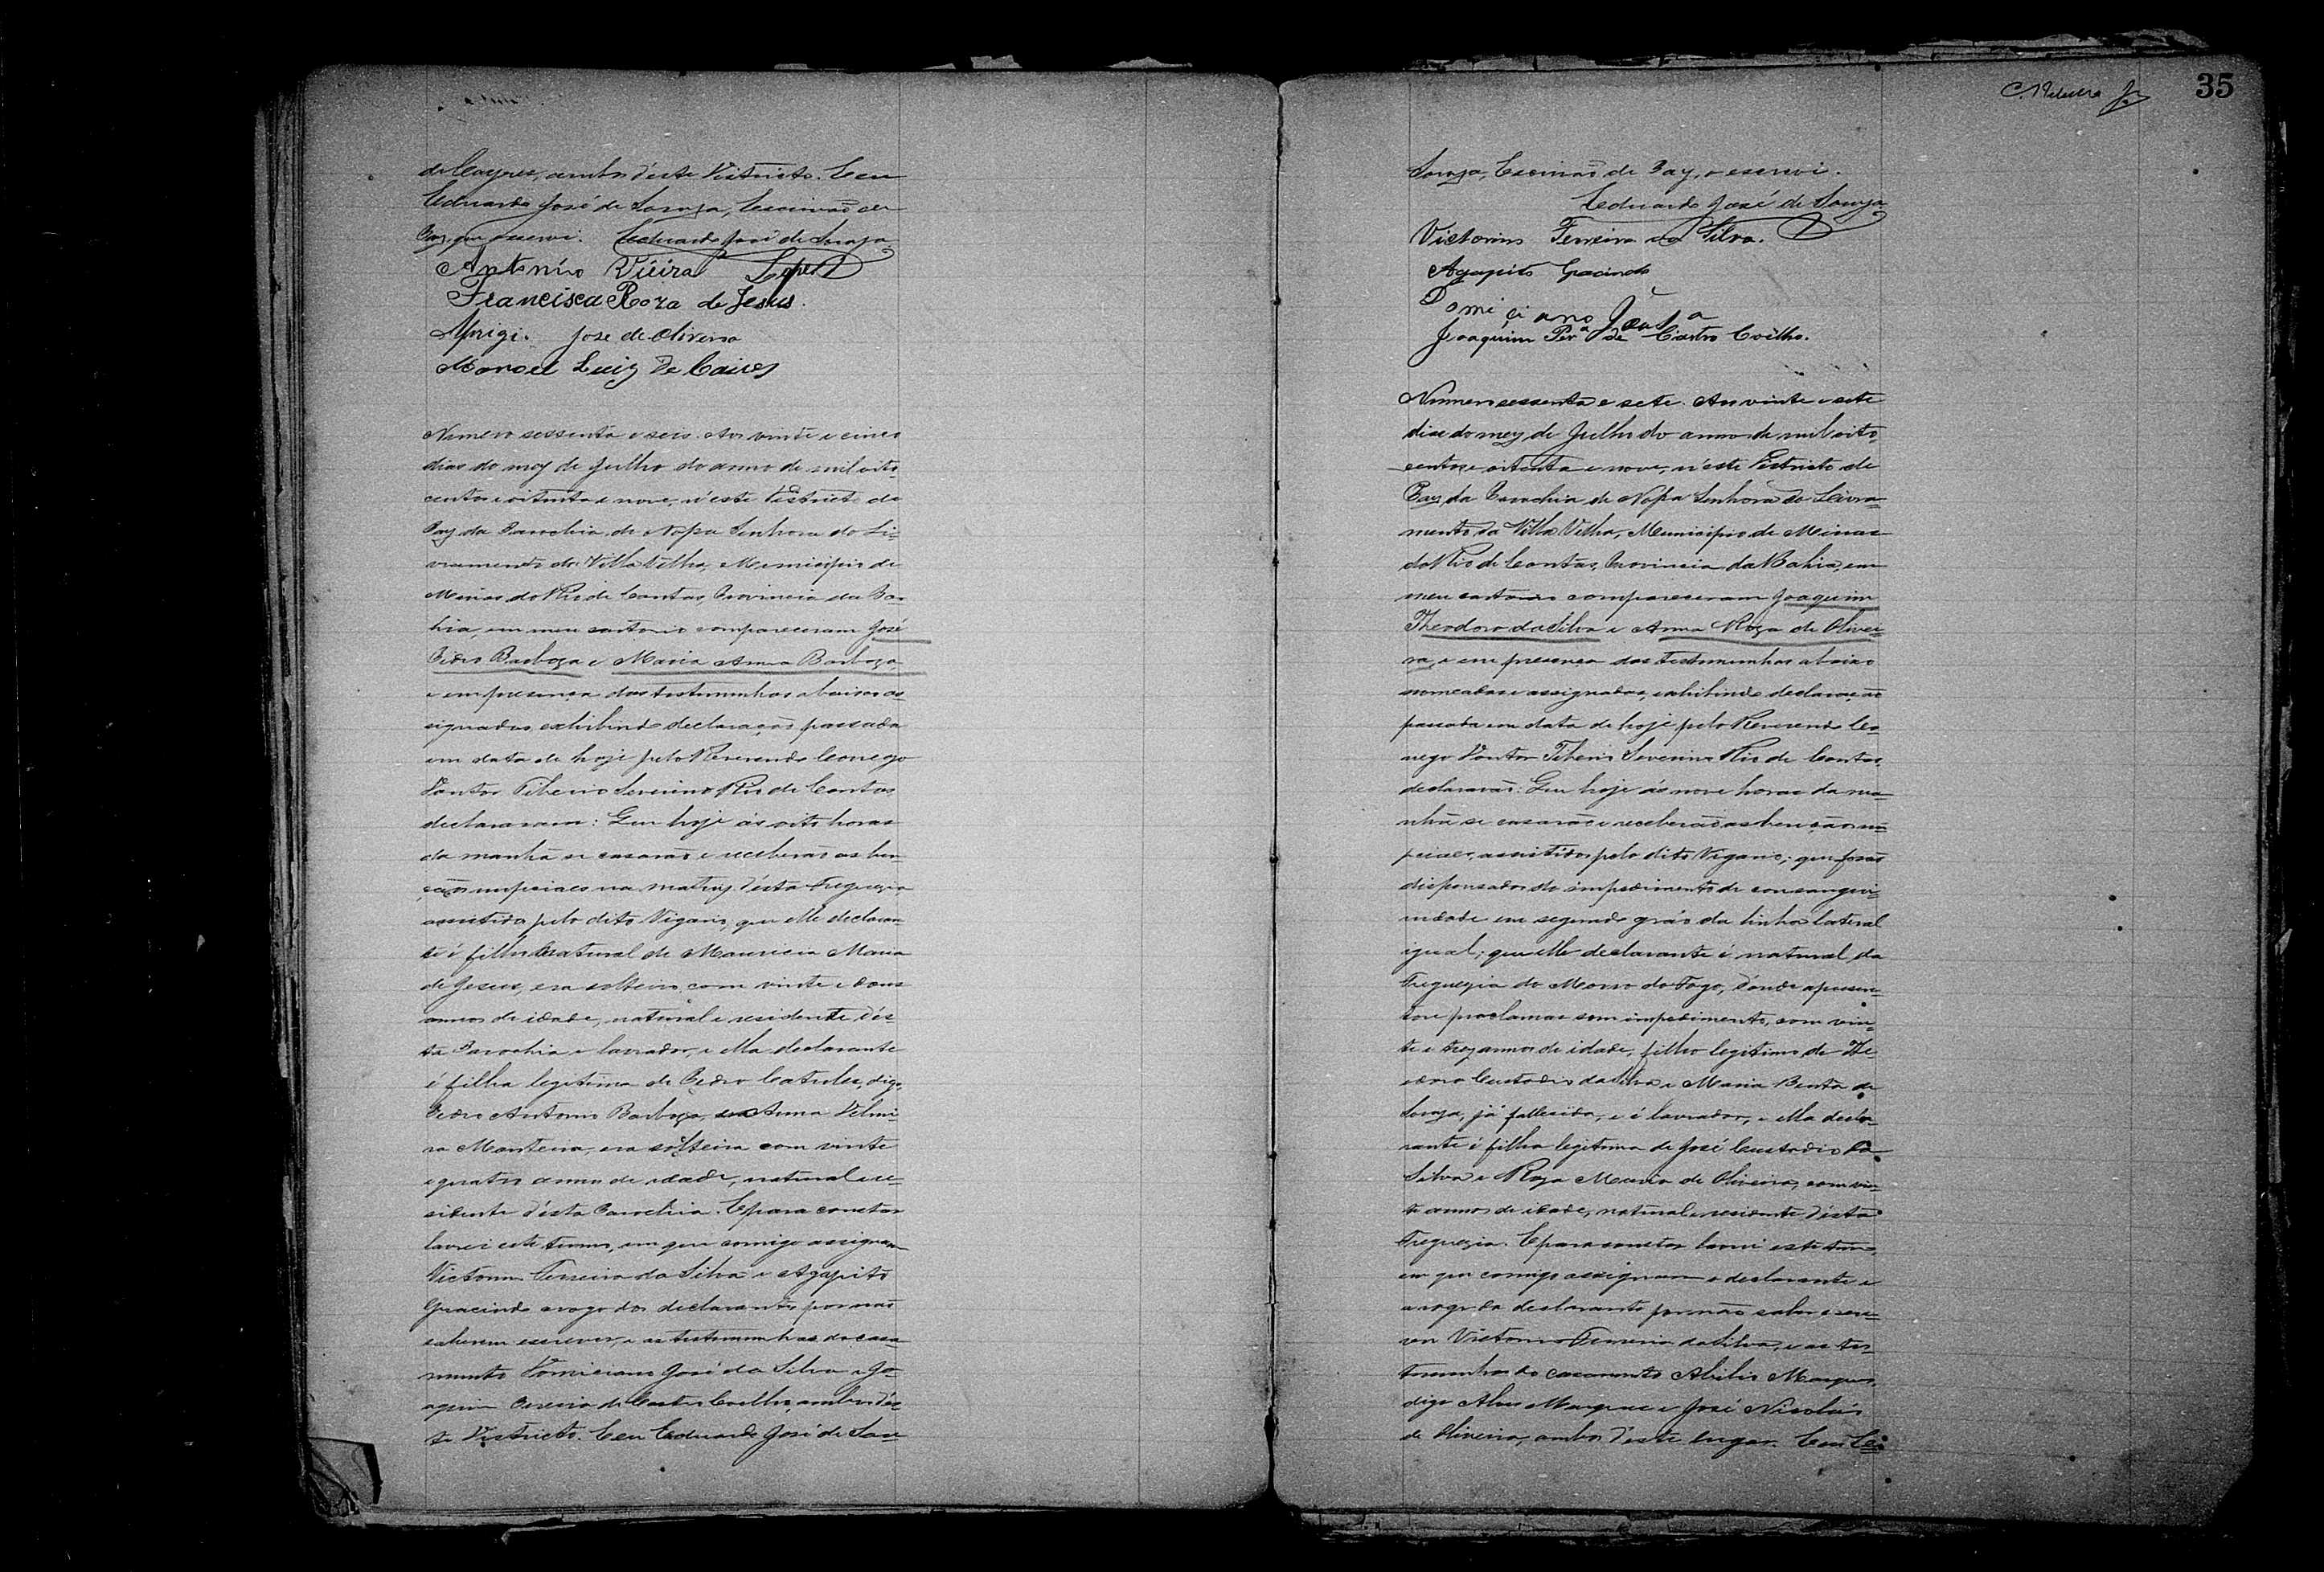 de Cayres, ambos d'este Districto. Eu
Eduardo José de Souza, Escrivão de
Paz, que escrevi. Eduardo José de Souza
Antonio Vieira Lopes
Francisca Roza de Jesus.
José de Oliveira
Manoel Luiz de Caires
Numero sessenta e seis. Aos vinte e cinco
dias do mez de Julho do anno de mil oito
centos e oitenta e nove, n'este Districto de
Paz da Parochia de Nossa Senhora do Li-
vramento da Villa Velha, Municipio de
Minas do Rio de Contas, Provincia da Ba-
hia, em meu cartorio compareceram José
Pedro Barboza e Maria Anna Barboza,
e em presença das testimunhas abaixo as
signadas, exhibindo declaração passada
em data de hoje pelo Reverendo Conego
Doutor Tiberio Severino Rio de Contas,
declararam: Que hoje ás oito horas
da manhã se casarão e receberão as ben
çãos nupciaes na matriz d'esta Freguezia
assistidos pelo dito Vigario, que elle declaran-
te é filho natural de Mauricia Maria
de Jesus, era solteiro, com vinte e dous
annos de idade, natural e residente d'es-
ta Parochia e lavrador, e ella declarante
é filha legitima de Pedro Catulé, digo,
Pedro Antonio Barboza, e Anna Delmi
ra Monteira, era solteira com vinte
e quatro annos de idade, natural e re-
sidente d'esta Parochia. E para constar
lavrei este termo, em que comigo assignam
Victorino Ferreira da Silva e Agapito
Gracindo a rogo dos declarantes por não
saberem escrever, e as testimunhas do casa
mento Domiciano José da Silva e Jo-
aquim Pereira de Castro Coelho, ambos d'es-
te Districto. Eu Eduardo José de Sou-
C. Ribeiro Jr 35
Souza, Escrivão de Paz, o escrevi.
Eduardo José de Souza
Victorino Ferreira da Silva.
Agapito Gracindo
Domiciano José
Joaquim Per.ª de Castro Coêlho.
Numero sessenta e sete. Aos vinte e sete
dias do mez de Julho do anno de mil oito-
centos e oitenta e nove, n'este Districto de
Paz da Parochia de Nossa Senhora do Livra-
mento da Villa Velha, Municipio de Minas
do Rio de Contas, Provincia da Bahia, em
meu cartorio compareceram Joaquim
Theodoro da Silva e Anna Roza de Olivei-
ra, e em presença das testimunhas abaixo
nomeadas e assignadas, exhibindo declaração
passada em data de hoje pelo Reverendo Co-
nego Doutor Tiberio Severino Rio de Contas,
declararão: Que hoje ás nove horas da ma-
nhã se casarão e receberão as bençãos nu-
pciaes, assistidos pelo dito Vigario; que forão
dispensados do impedimento de consangui-
nidade em segundo gráo da linha lateral
igual; que elle declarante é natural da
Freguezia do Morro do Fogo, d'onde apresen-
tou proclamas sem impedimento, com vin-
te e trez annos de idade, filho legitimo de The-
odoro Custodio da Silva e Maria Benta de
Souza, já fallecida, e é lavrador, e ella decla-
rante é filha legitima de José Custodio da
Silva e Roza Maria de Oliveira, com vin-
te annos de idade, natural e residente d'esta
Freguezia. E para constar lavrei este termo,
em que comigo assignam o declarante e
a rogo da declarante por não saber escre-
ver Victorino Ferreira da Silva, e as tes-
timunhas do casamento Abilio Marques,
digo Alves Marques e José Nicoláo
de Oliveira, ambos d'este lugar. Eu